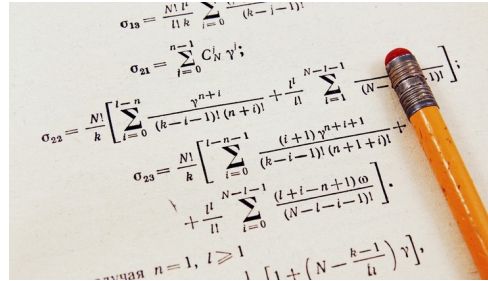 σ₁₃ = N! lˡ / l! k ∑ i=0 (k-i-1)!
σ₂₁ = ∑ i=0 n-1 Cᶦ_N γᶦ;
σ₂₂ = N!/k [ ∑ i=0 l-n γⁿ⁺ᶦ / (k-i-1)! (n+i)! + lˡ/l! ∑ i=1 N-l-1 (N- )! ];
σ₂₃ = N!/k [ ∑ i=0 l-n-1 (i+1) γⁿ⁺ᶦ⁺¹ / (k-i-1)! (n+1+i)! +
+ lˡ/l! ∑ i=0 N-l-1 (l+i-n+1) ω / (N-l-i-1)! ].
n=1, l⩾1
[ 1 + ( N - k-1 / ) γ ],